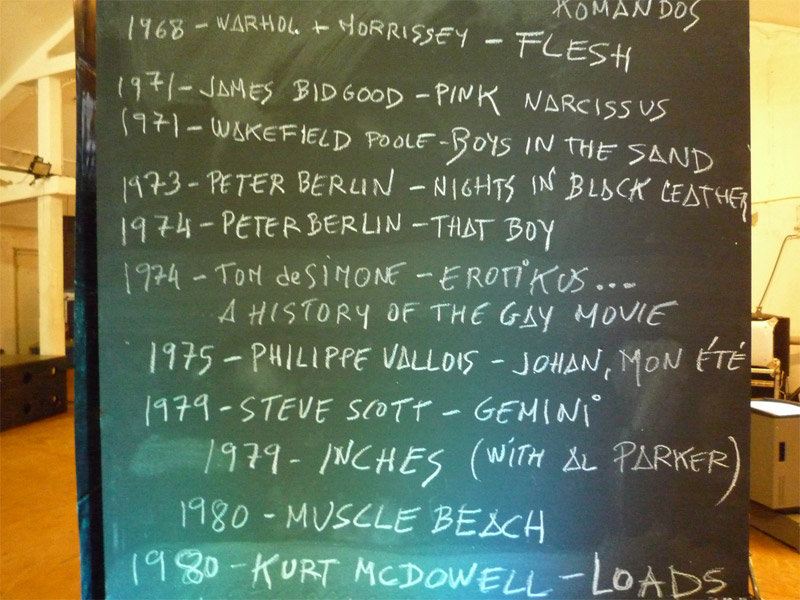 KOMANDOS
1968 - WARHOL + MORRISSEY - FLESH
1971 - JAMES BIDGOOD - PINK NARCISSUS
1971 - WAKEFIELD POOLE - BOYS IN THE SAND
1973 - PETER BERLIN - NIGHTS IN BLACK LEATHER
1974 - PETER BERLIN - THAT BOY
1974 - TOM deSIMONE - EROTIKUS...
A HISTORY OF THE GAY MOVIE
1975 - PHILIPPE VALLOIS - JOHAN, MON ÉTÉ
1979 - STEVE SCOTT - GEMINI
1979 - INCHES (WITH AL PARKER)
1980 - MUSCLE BEACH
1980 - KURT MCDOWELL - LOADS